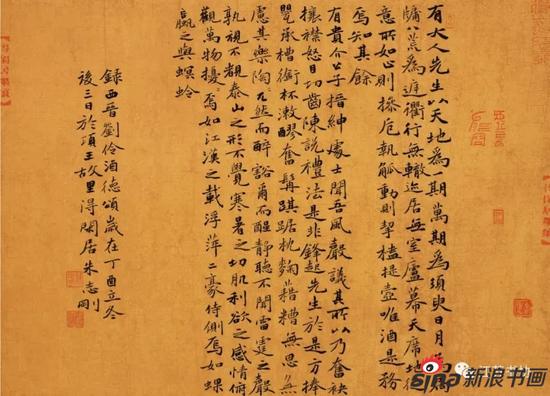 有大人先生以天地為一期萬期為須臾日月為扃
牖八荒為庭衢行無轍迹居無室廬幕天席地縱
意所如止則操卮執觚動則挈榼提壺唯酒是務
焉知其餘
有貴介公子搢紳處士聞吾風聲議其所以乃奮袂
攘襟怒目切齒陳說禮法是非鋒起先生於是方捧
甖承槽銜杯漱醪奮髯踑踞枕麴藉糟無思無
慮其樂陶〻兀然而醉豁爾而醒靜聽不聞雷霆之聲
孰視不覩泰山之形不覺寒暑之切肌利欲之感情俯
觀萬物擾〻焉如江漢之載浮萍二豪侍側焉如蜾
蠃之與螟蛉
錄西晉劉伶酒德頌歲在丁酉立冬
後三日於項王故里得閑居朱志剛
sina新浪书画